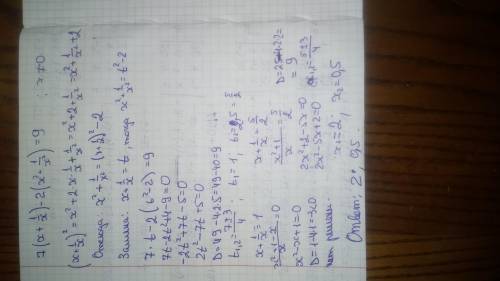 7(x+1/x)-2(x²+1/x²)=9 ; x≠0
(x+1/x)²=x²+2·x·1/x+1/x²=x²+2+1/x²=x²+1/x²+2
Отсюда: x²+1/x²=(x+1/x)²-2
Замена: x+1/x=t, тогда x²+1/x²=t²-2
7·t-2(t²-2)=9
7t-2t²+4-9=0
-2t²+7t-5=0
2t²-7t+5=0
D=49-4·2·5=49-40=9
t₁,₂=7±3/4, t₁=1, t₂=2,5=5/2
x+1/x=1
x²+1-x/x=0
x²-x+1=0
D=1-4·1=-3<0
нет решений.
x+1/x=5/2
x²+1/x=5/2
2x²+2-5x=0
2x²-5x+2=0
x₁=2, x₂=0,5
D=25-4·2·2=
=9
x₁,₂=5±3/4
Ответ: 2; 0,5.